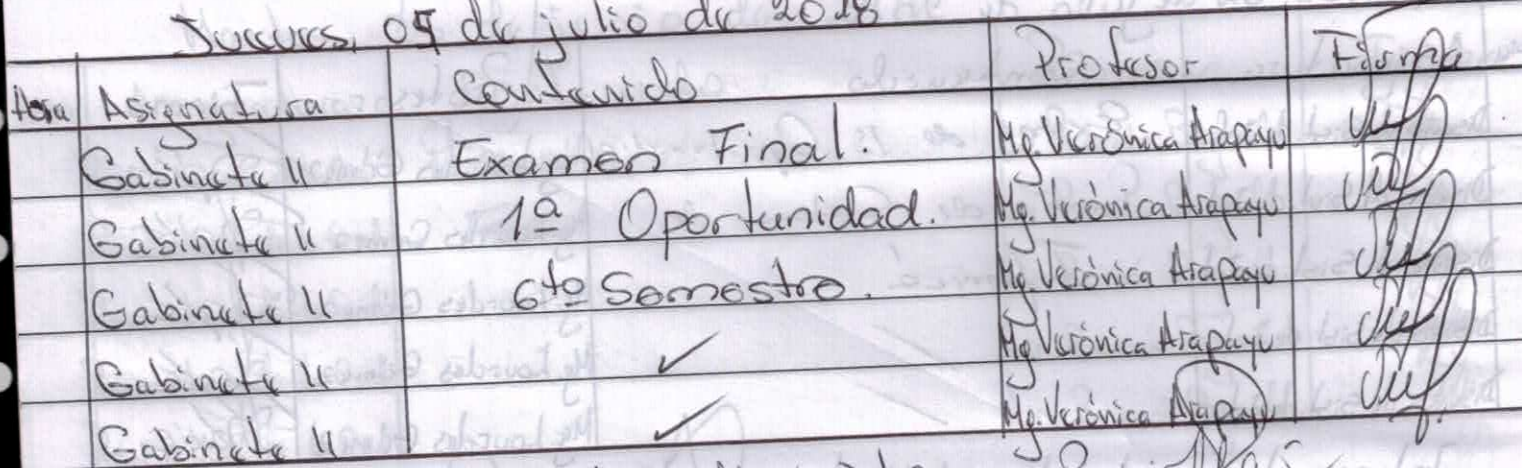 Jueves, 05 de julio de 2018
Hora Asignatura Contenido Profesor Firma
Gabinete II Examen Final. Mg. Verónica Arapayu
Gabinete II 1ª Oportunidad. Mg. Verónica Arapayu
Gabinete II 6to Semestre. Mg. Verónica Arapayu
Gabinete II ✓ Mg. Verónica Arapayu
Gabinete II ✓ Mg. Verónica Arapayu